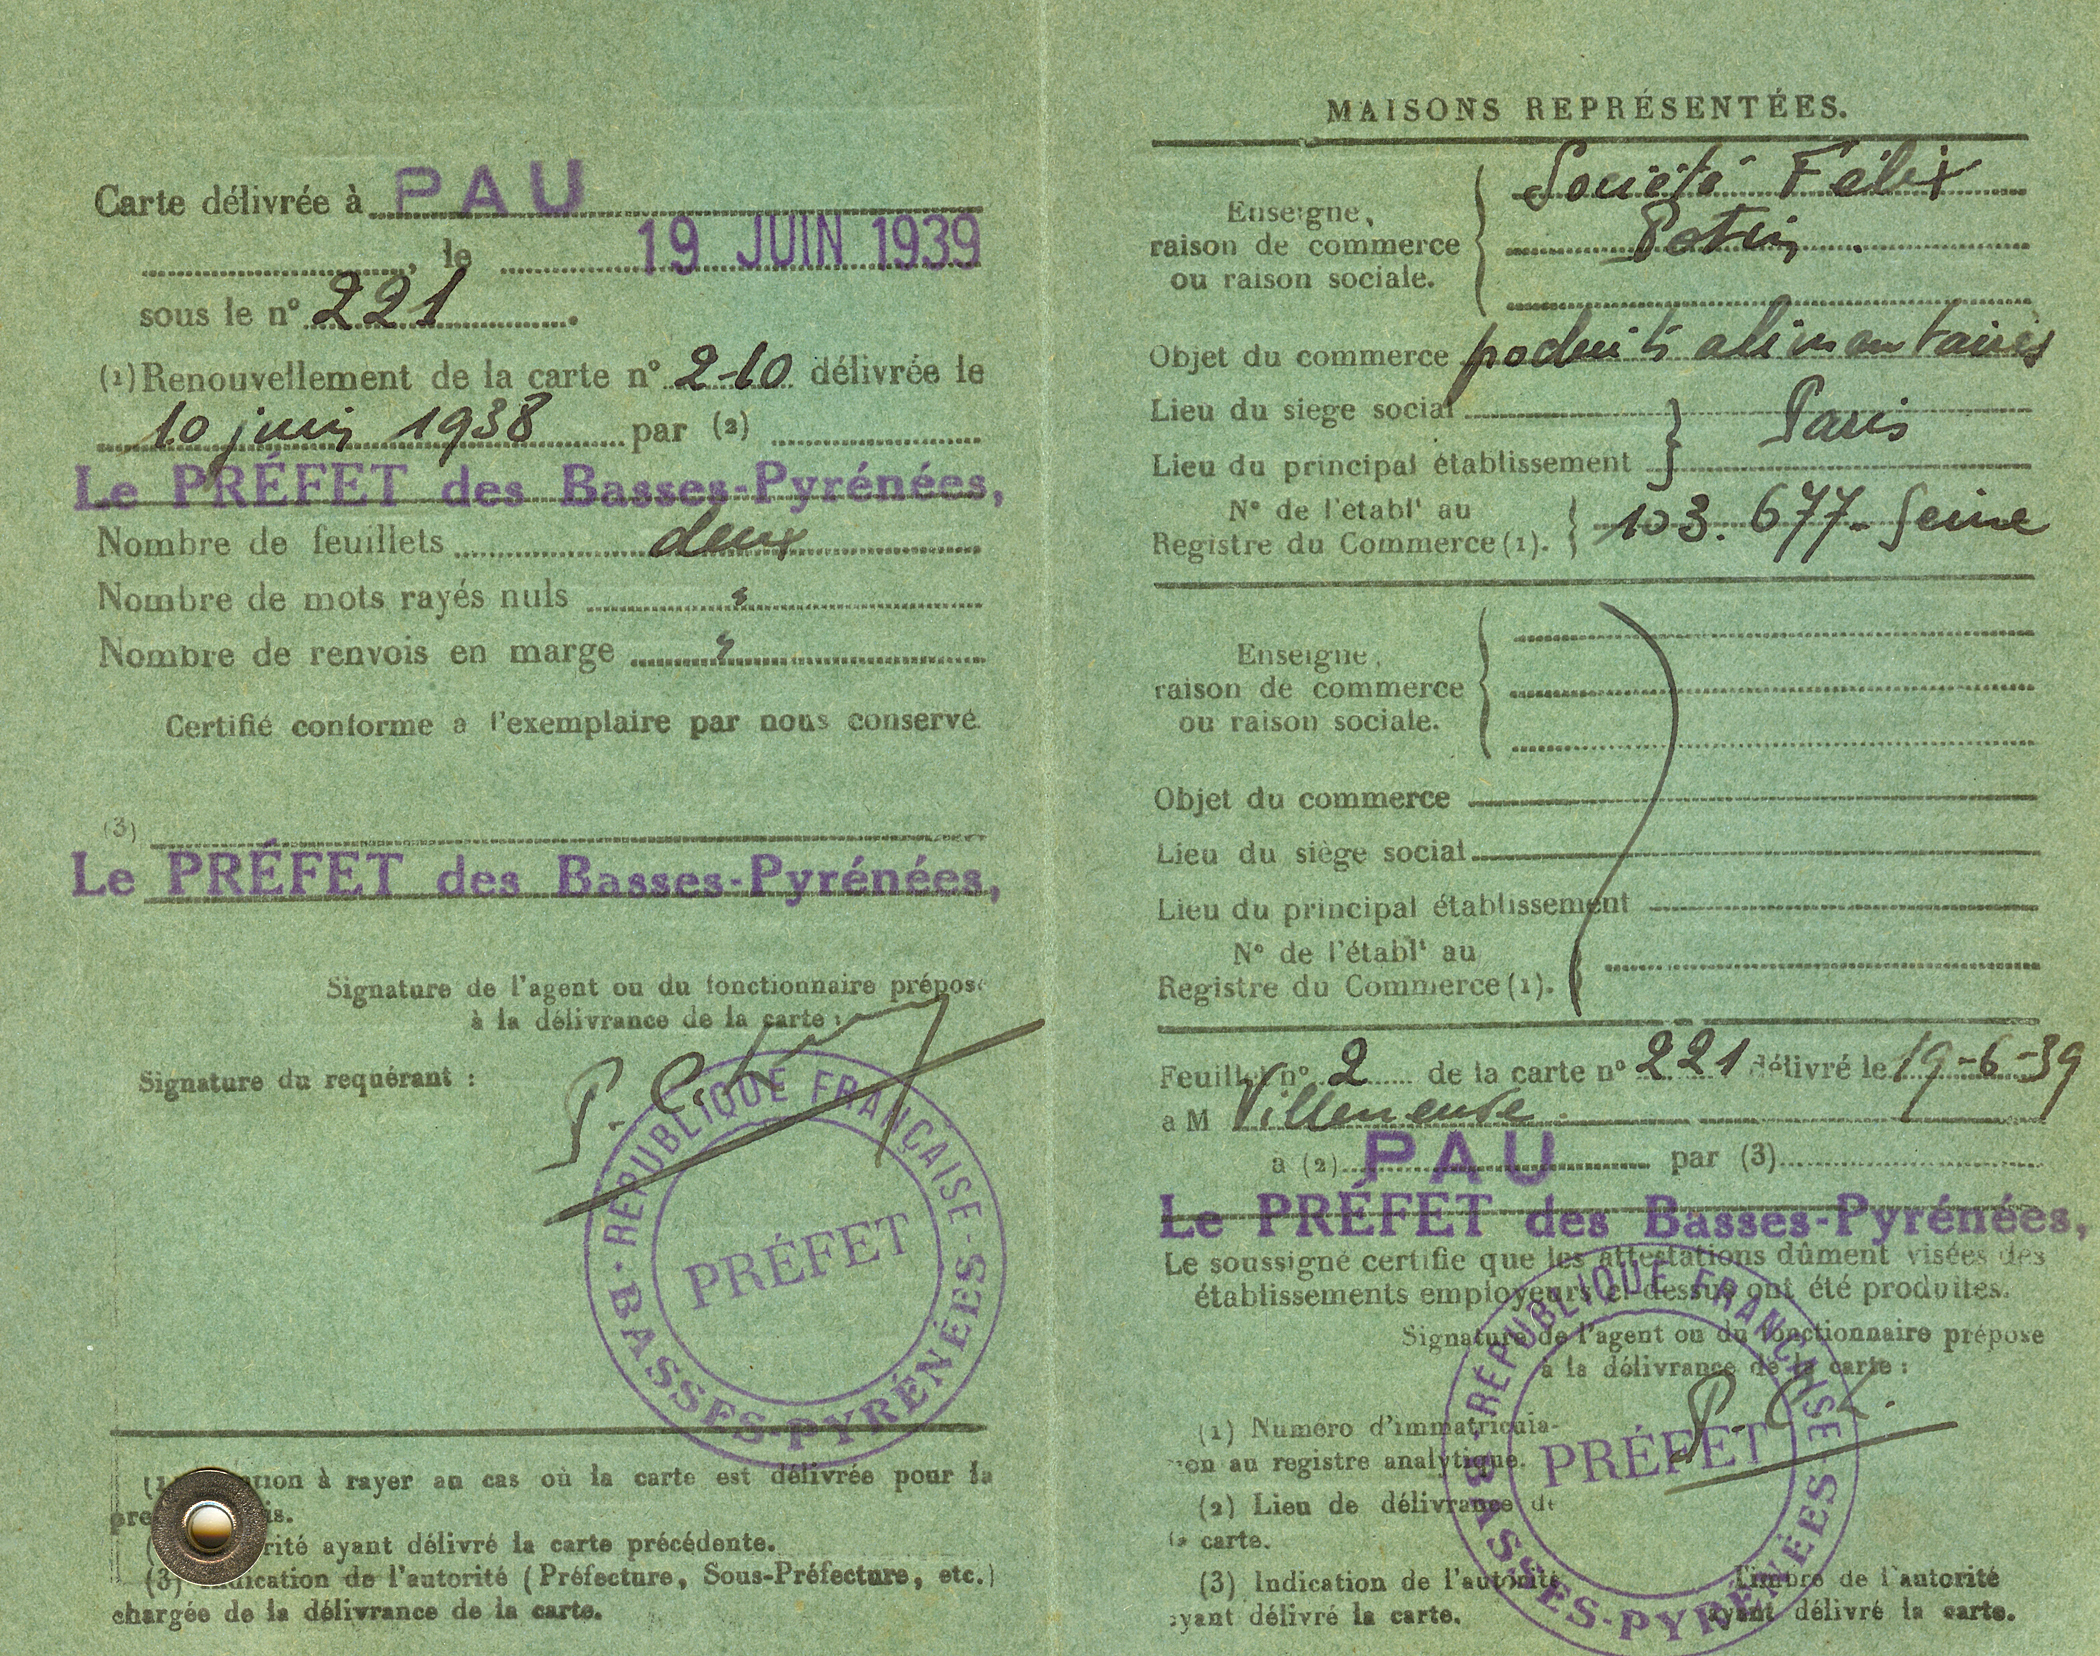 Carte délivrée à PAU
, le 19 JUIN 1939
sous le n° 221.
(1) Renouvellement de la carte n° 2-10 délivrée le
10 juin 1938 par (2)
Le PRÉFET des Basses-Pyrénées,
Nombre de feuillets deux
Nombre de mots rayés nuls
Nombre de renvois en marge
Certifié conforme a l'exemplaire par nous conservé.
(3)
Le PRÉFET des Basses-Pyrénées,
Signature de l'agent ou du fonctionnaire préposé
à la délivrance de la carte :
Signature du requérant :
RÉPUBLIQUE FRANÇAISE
PRÉFET
BASSES-PYRÉNÉES
à rayer au cas où la carte est délivrée pour la
ayant délivré la carte précédente.
(3) Indication de l'autorité (Préfecture, Sous-Préfecture, etc.)
chargée de la délivrance de la carte.
MAISONS REPRÉSENTÉES.
Enseigne,
raison de commerce
ou raison sociale.
Société Félix
Potin
Objet du commerce produits alimentaires
Lieu du siege social
Lieu du principal établissement
Paris
N° de l'etablt au
Registre du Commerce (1). 103.677- Seine
Enseigne,
raison de commerce
ou raison sociale.
Objet du commerce
Lieu du siège social
Lieu du principal établissement
N° de l'établt au
Registre du Commerce (1).
Feuillet n° 2 de la carte n° 221 délivré le 19-6-39
a M Villeneuve
a (2) PAU par (3)
Le PRÉFET des Basses-Pyrénées,
Le soussigné certifie que les attestations dûment visées des
établissements employeurs ci-dessus ont été produites.
Signature de l'agent ou du fonctionnaire prépose
à la délivrance de la carte :
RÉPUBLIQUE FRANÇAISE
PRÉFET
BASSES-PYRÉNÉES
(1) Numéro d'immatricula-
on au registre analytique.
(2) Lieu de délivrance de
la carte.
(3) Indication de l'autorité
ayant délivré la carte.
Timbre de l'autorité
ayant délivré la carte.